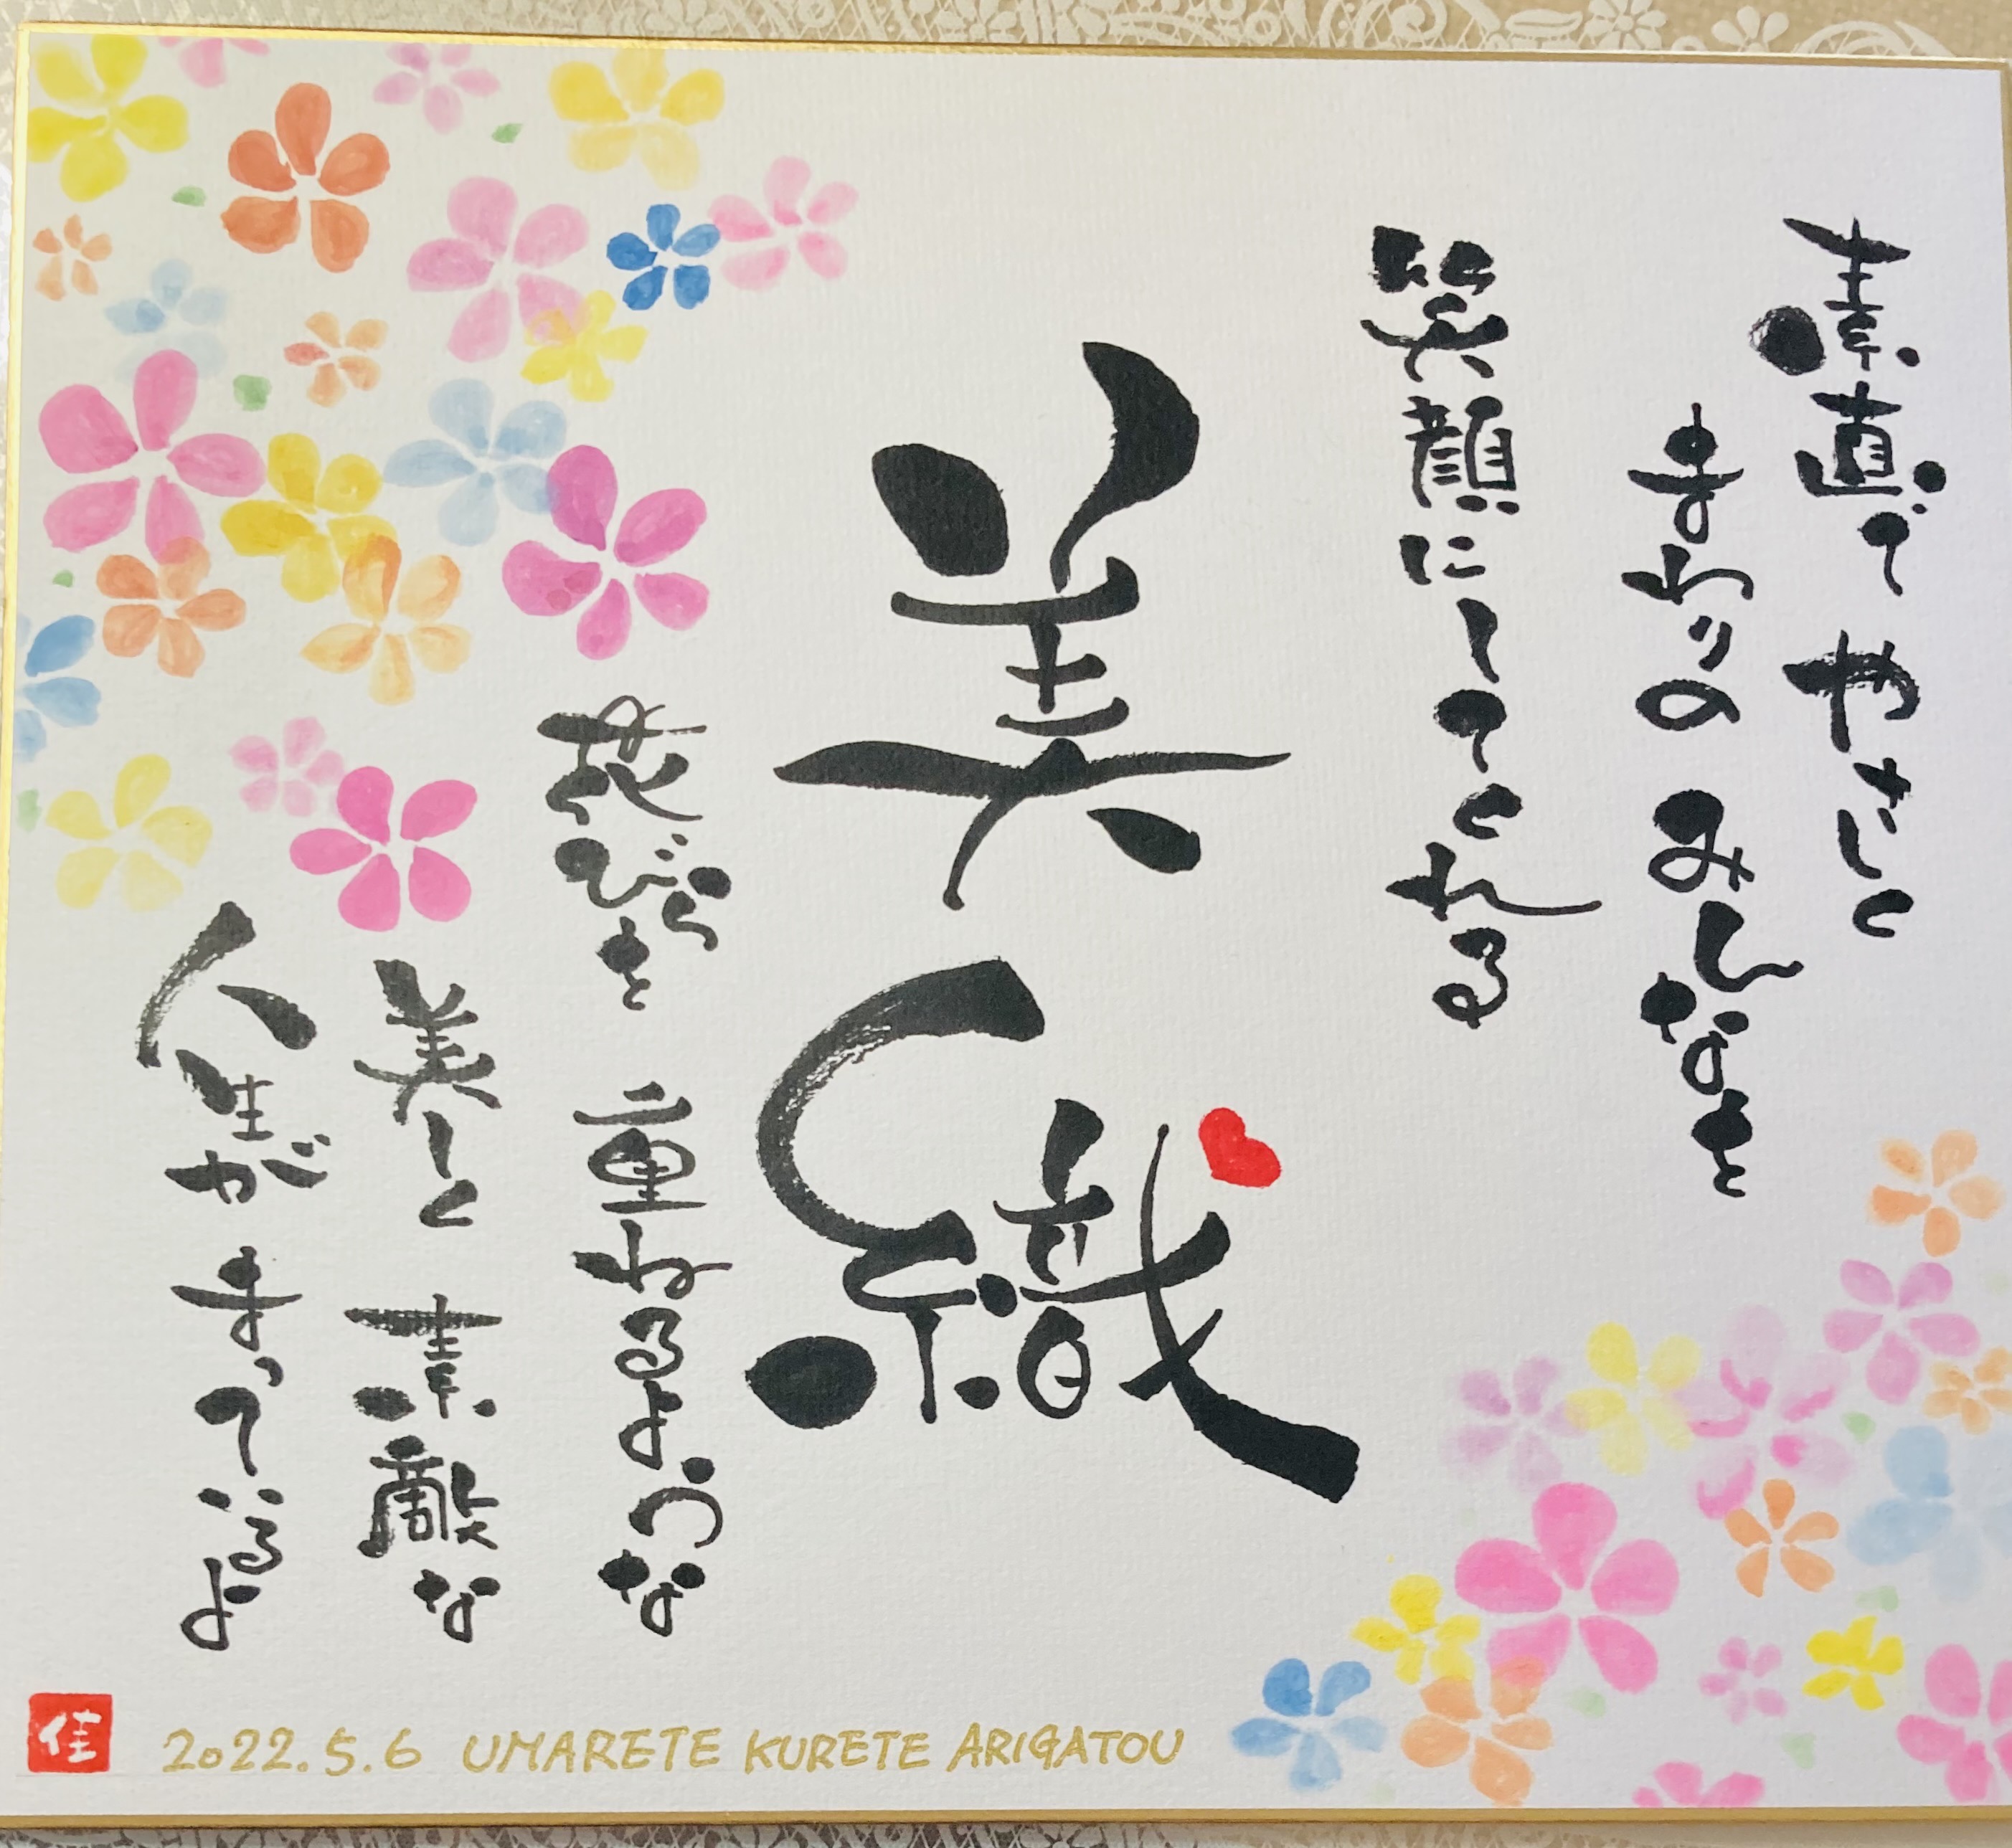 素直で やさしく
まわりの みんなを
笑顔にしてくれる
美織
花びらを 重ねるような
美しく 素敵な
人生が まっているよ
佳
2022.5.6 UMARETE KURETE ARIGATOU